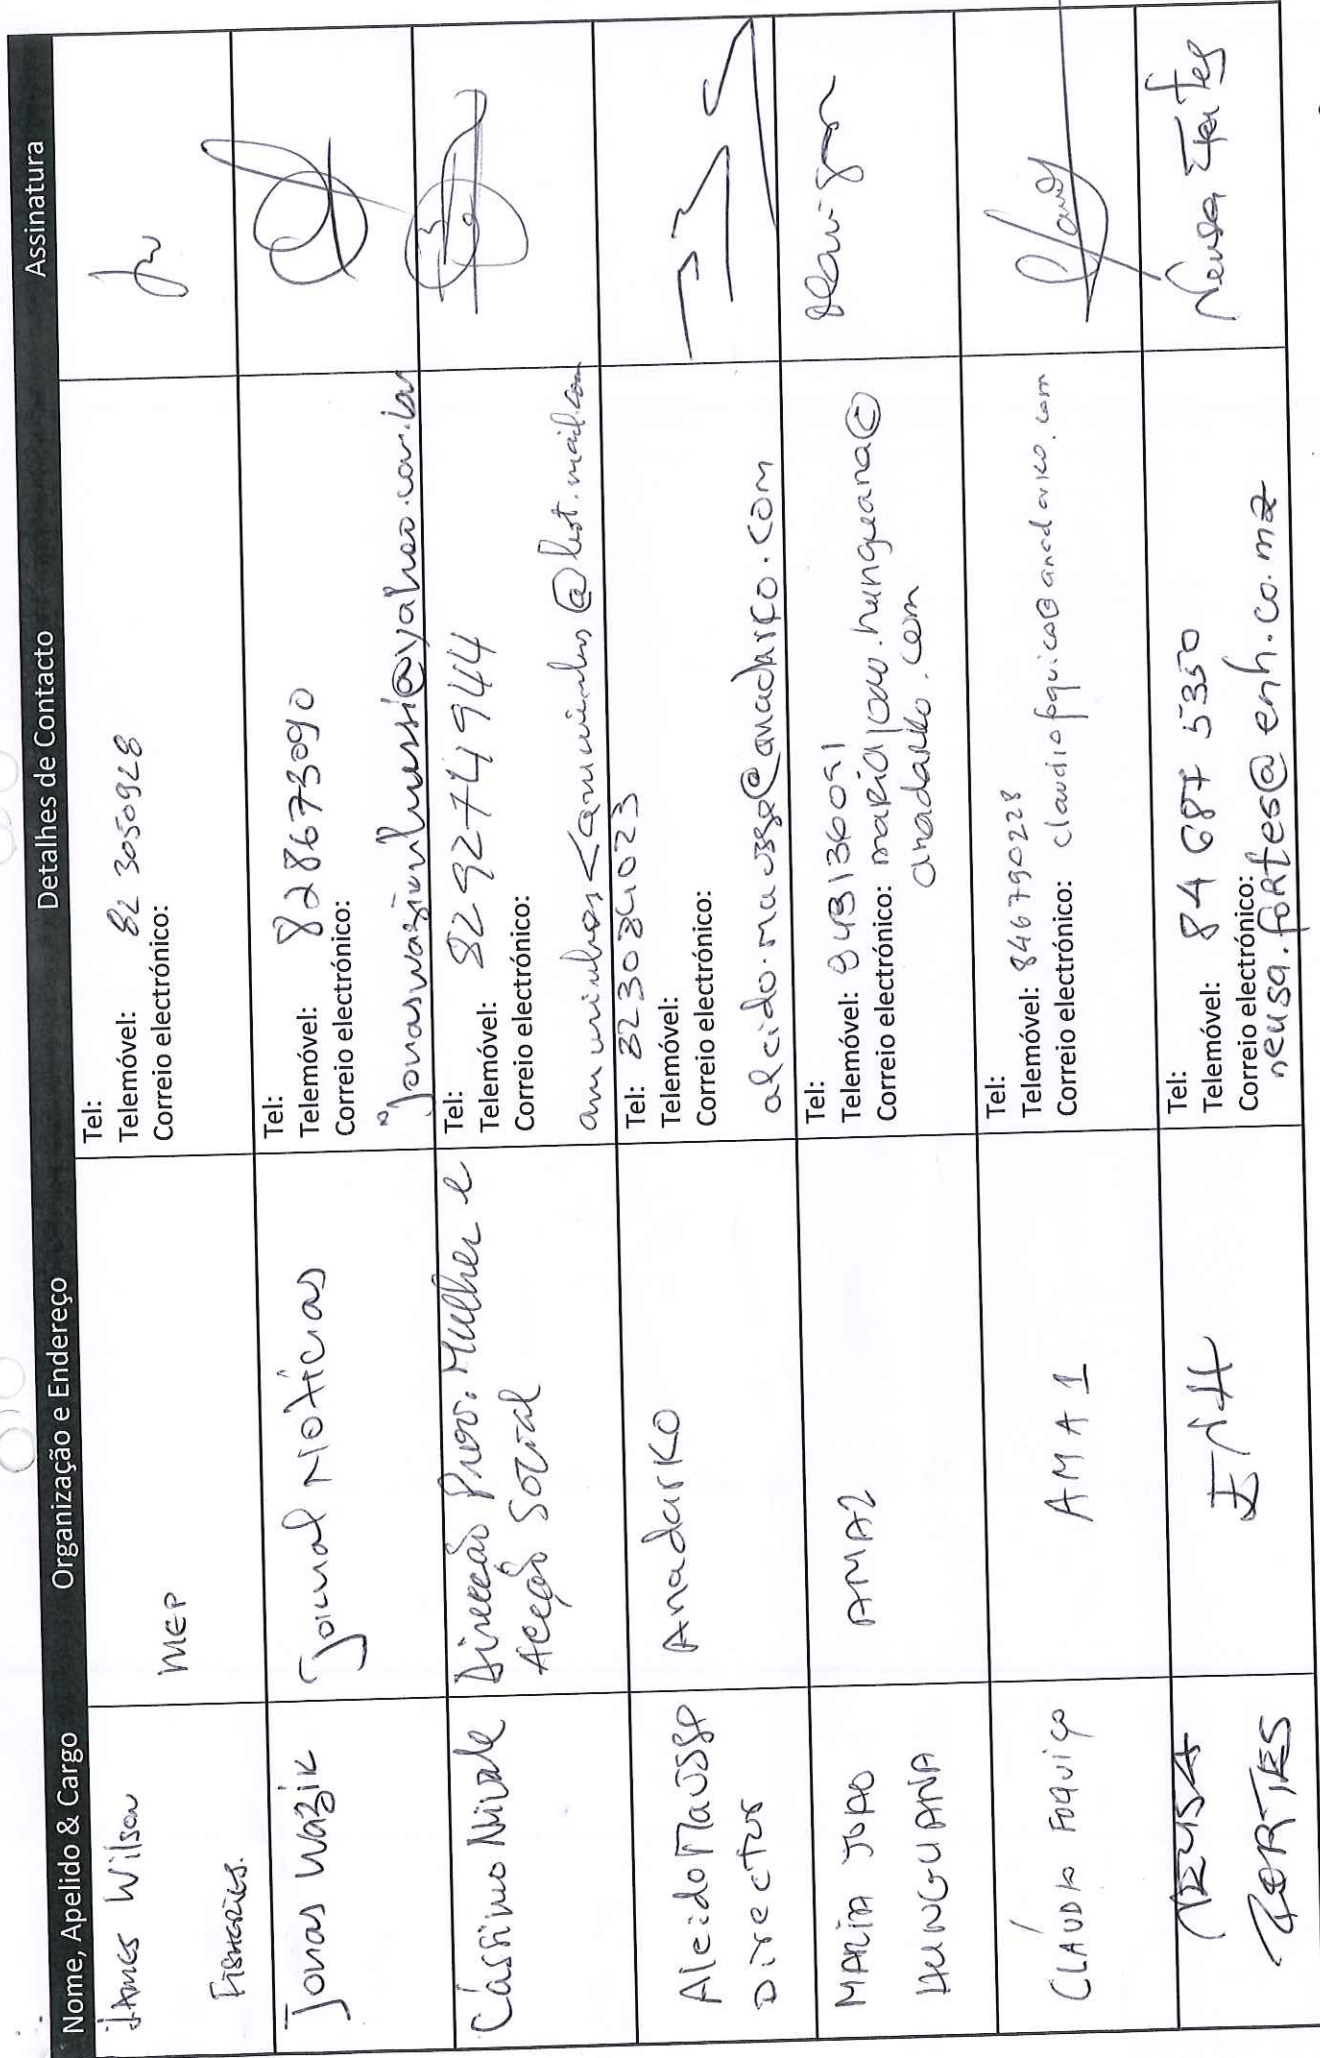 Nome, Apelido & Cargo Organização e Endereço Detalhes de Contacto Assinatura
James Wilson
Fisheries.
MEP
Tel:
Telemóvel: 82 3050928
Correio electrónico:
Jonas Wazik
Jornal Notícias
Tel:
Telemóvel: 828673090
Correio electrónico:
Cássimo
Direcção Prov. Mulher e
Acção Social
Tel:
Telemóvel: 82 9274944
Correio electrónico:
Alcido Mausse
Director
Anadarko
Tel: 823034023
Telemóvel:
Correio electrónico:
alcido.mausse@anadarko.com
MARIA JOÃO
HUNGUANA
AMA2
Tel:
Telemóvel: 843136091
Correio electrónico: maria joao.hunguana@
anadarko.com
CLÁUDIO FOQUIÇO
AMA 1
Tel:
Telemóvel: 846790228
Correio electrónico: claudio foquico@anadarko.com
NEUSA
FORTES
ENH
Tel:
Telemóvel: 84 687 5350
Correio electrónico:
neusa.fortes@enh.co.mz
Neusa Fortes